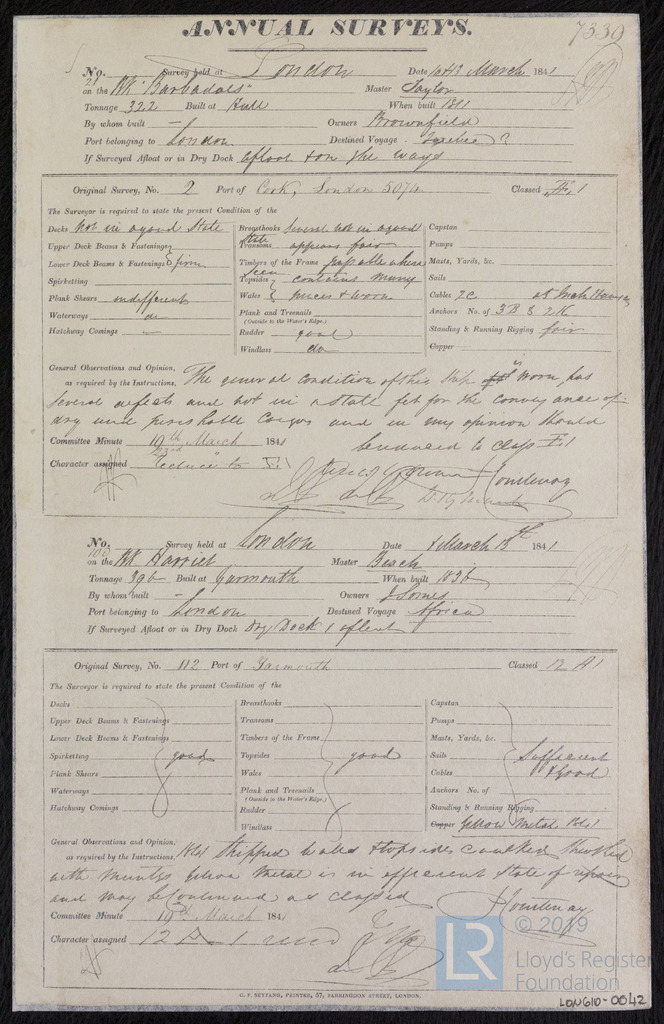 ANNUAL SURVEYS.
7339
No. Survey held at London Date 1841
on the Bk "Barbadoes" Master Taylor
Tonnage 322 Built at Hull When built 1811
By whom built — Owners Brownfield
Port belonging to London Destined Voyage Quebec ?
If Surveyed Afloat or in Dry Dock afloat & on the ways
Original Survey, No. 2 Port of Cork, London 5074 Classed Æ1
The Surveyor is required to state the present Condition of the
Decks Not in a good State
Upper Deck Beams & Fastenings
Lower Deck Beams & Fastenings firm
Spirketting
Plank Shears indifferent
Waterways do
Hatchway Comings —
Breasthooks Several not in a good State
Transoms appears fair
Timbers of the Frame where seen
Topsides contains many
Wales pieces & worn
Plank and Treenails
(Outside to the Water's Edge.)
Rudder good
Windlass do
Capstan
Pumps
Masts, Yards, &c.
Sails
Cables 2C
Anchors No. of 3B S 2K
Standing & Running Rigging fair
Copper
General Observations and Opinion,
as required by the Instructions, The general condition of this Ship is worn, has
several defects and not in a state fit for the conveyance of
dry and perishable Cargoes and in my opinion should
be reduced to class Æ1
Committee Minute 19th March 1841
Character assigned "reduce" to Æ1
Courtenay
No. Survey held at London Date March 18th 1841
on the Bk Harriet Master Beach
Tonnage 396 Built at Yarmouth When built 1836
By whom built — Owners J Somes
Port belonging to London Destined Voyage Africa
If Surveyed Afloat or in Dry Dock Dry Dock & afloat
Original Survey, No. 112 Port of Yarmouth Classed 12 A1
The Surveyor is required to state the present Condition of the
Decks
Upper Deck Beams & Fastenings
Lower Deck Beams & Fastenings
Spirketting good
Plank Shears
Waterways
Hatchway Comings
Breasthooks
Transoms
Timbers of the Frame
Topsides good
Wales
Plank and Treenails
(Outside to the Water's Edge.)
Rudder
Windlass
Capstan
Pumps
Masts, Yards, &c.
Sails Sufficient
Cables & Good
Anchors No. of
Standing & Running Rigging
Copper Yellow Metal
General Observations and Opinion,
as required by the Instructions, stripped wales & topsides caulked
with Muntz yellow Metal is in efficient State of repair
and may be continued as classed
Courtenay
Committee Minute 19th March 1841
Character assigned 12 A 1
G. F. SEYFANG, PRINTER, 57, FARRINGDON STREET, LONDON.
LR
© 2019
Lloyd's Register
Foundation
LON610-0042